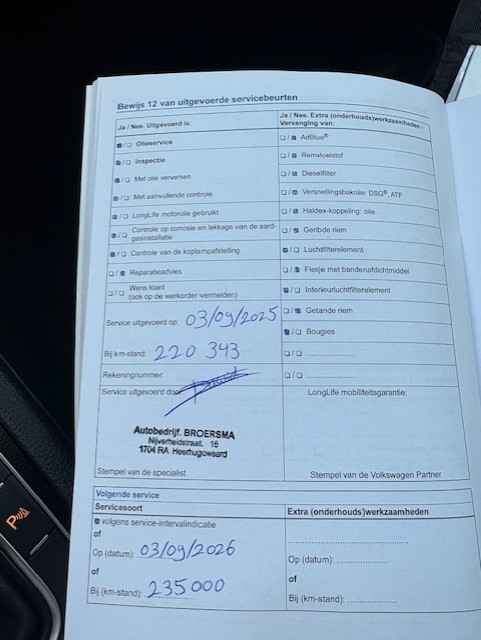 Bewijs 12 van uitgevoerde servicebeurten
Ja / Nee. Uitgevoerd is:
Olieservice
Inspectie
Met olie verversen
Met aanvullende controle
LongLife motorolie gebruikt
Controle op corrosie en lekkage van de aard-
gasinstallatie
Controle van de koplampafstelling
Reparatieadvies
Wens klant
(ook op de werkorder vermelden)
Service uitgevoerd op: 03/09/2025
Bij km-stand: 220 343
Rekeningnummer:
Service uitgevoerd door:
Autobedrijf. BROERSMA
Nijverheidstraat. 16
1704 RA Heerhugowaard
Stempel van de specialist.
Ja / Nee. Extra (onderhouds)werkzaamheden -
Vervanging van:
AdBlue®
Remvloeistof
Dieselfilter
Versnellingsbakolie: DSG®, ATF
Haldex-koppeling: olie
Geribde riem
Luchtfilterelement
Flesje met bandenafdichtmiddel
Interieurluchtfilterelement
Getande riem
Bougies
LongLife mobiliteitsgarantie:
Stempel van de Volkswagen Partner
Volgende service
Servicesoort
volgens service-intervalindicatie
of
Op (datum): 03/09/2026
of
Bij (km-stand): 235000
Extra (onderhouds)werkzaamheden
Op (datum):
of
Bij (km-stand):
P